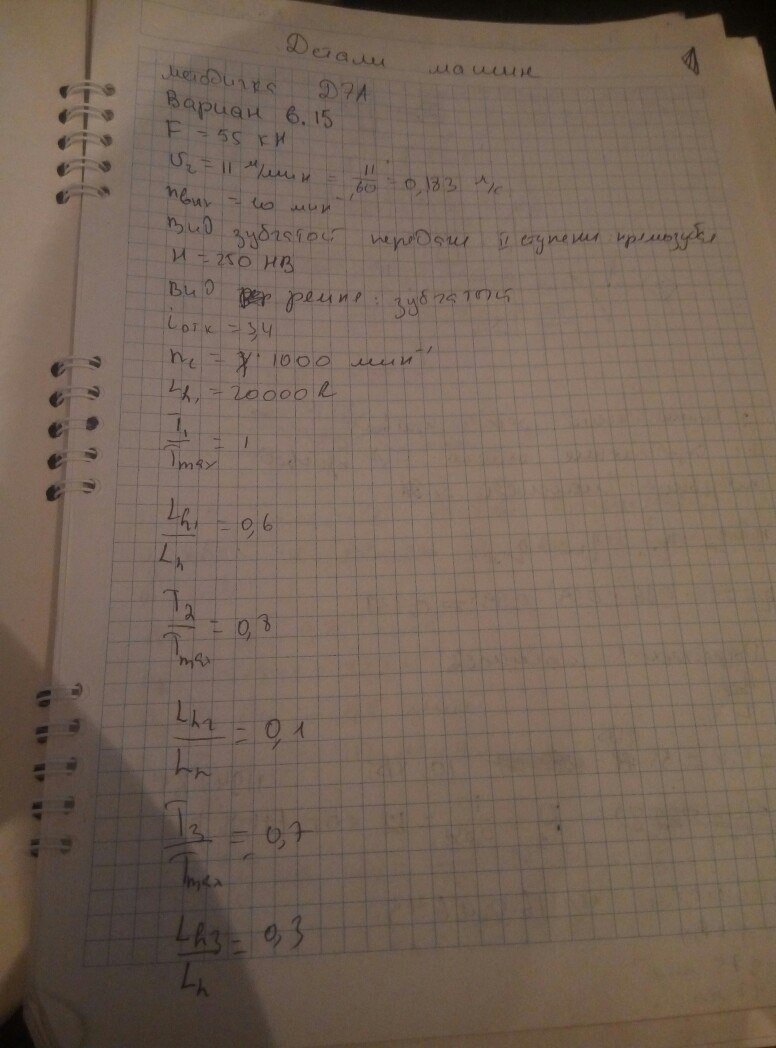 Детали машин
методичка Д7А
Вариан 6.15
F = 55 кН
= 11 м/мин = 11/60 = 0,183 м/с
nвых = 10 мин⁻¹
Вид зубчатой передачи II ступени прямозубая
H = 250 HB
Вид ремня: зубчатый
= 3,4
= 1000 мин⁻¹
= 20000 h
T₁/Tmax = 1
Lh₁/Lh = 0,6
T₂/Tmax = 0,8
Lh₂/Lh = 0,1
T₃/Tmax = 0,7
Lh₃/Lh = 0,3